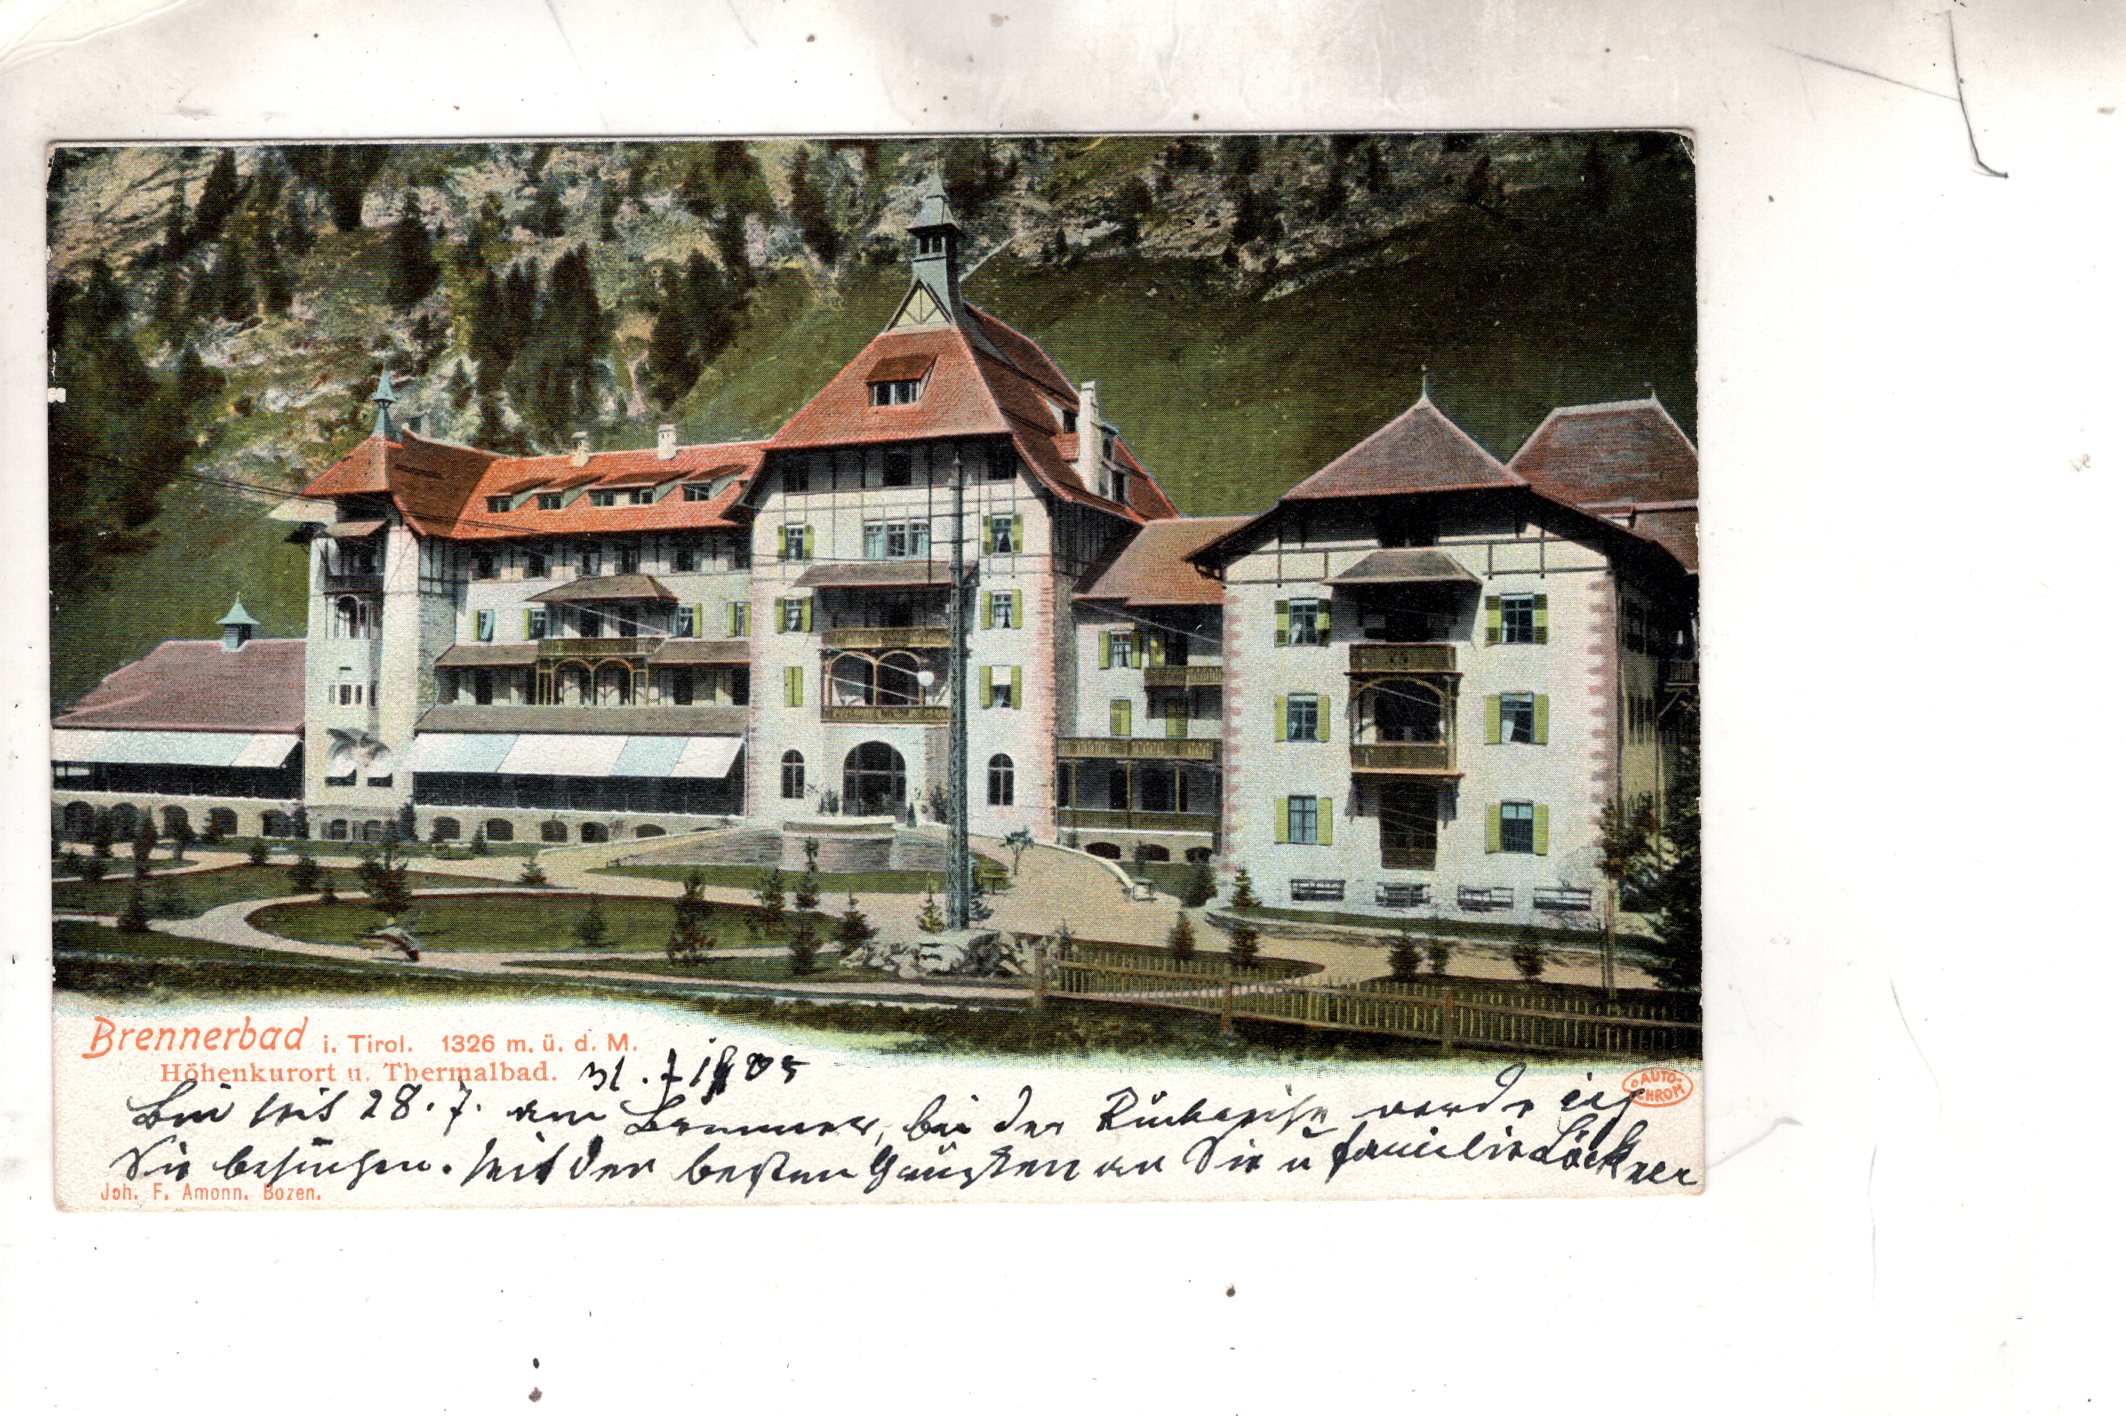 Brennerbad i. Tirol. 1326 m. ü. d. M.
Höhenkurort u. Thermalbad. 31. 7 1905
Bin seit 28. 7. am Brenner, bei der Rückreise werde ich
Sie besuchen. Mit den besten Grüßen an Sie u familie Löckner
Joh. F. Amonn. Bozen.
AUTO-
CHROM